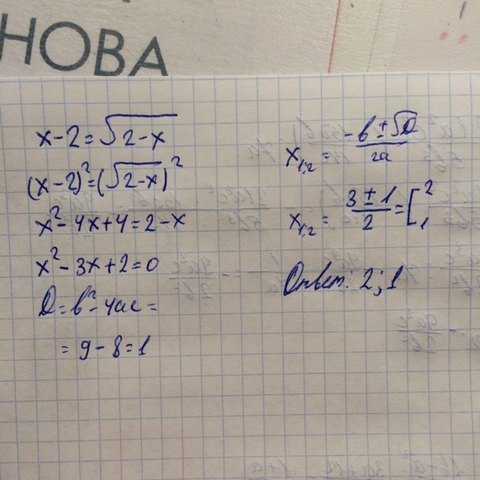 НОВА
x-2=√2-x
(x-2)²=(√2-x)²
x²-4x+4=2-x
x²-3x+2=0
D=b²-4ac=
=9-8=1
x1,2=-b±√D/2a
x1,2=3±1/2=[2 1
Ответ: 2;1